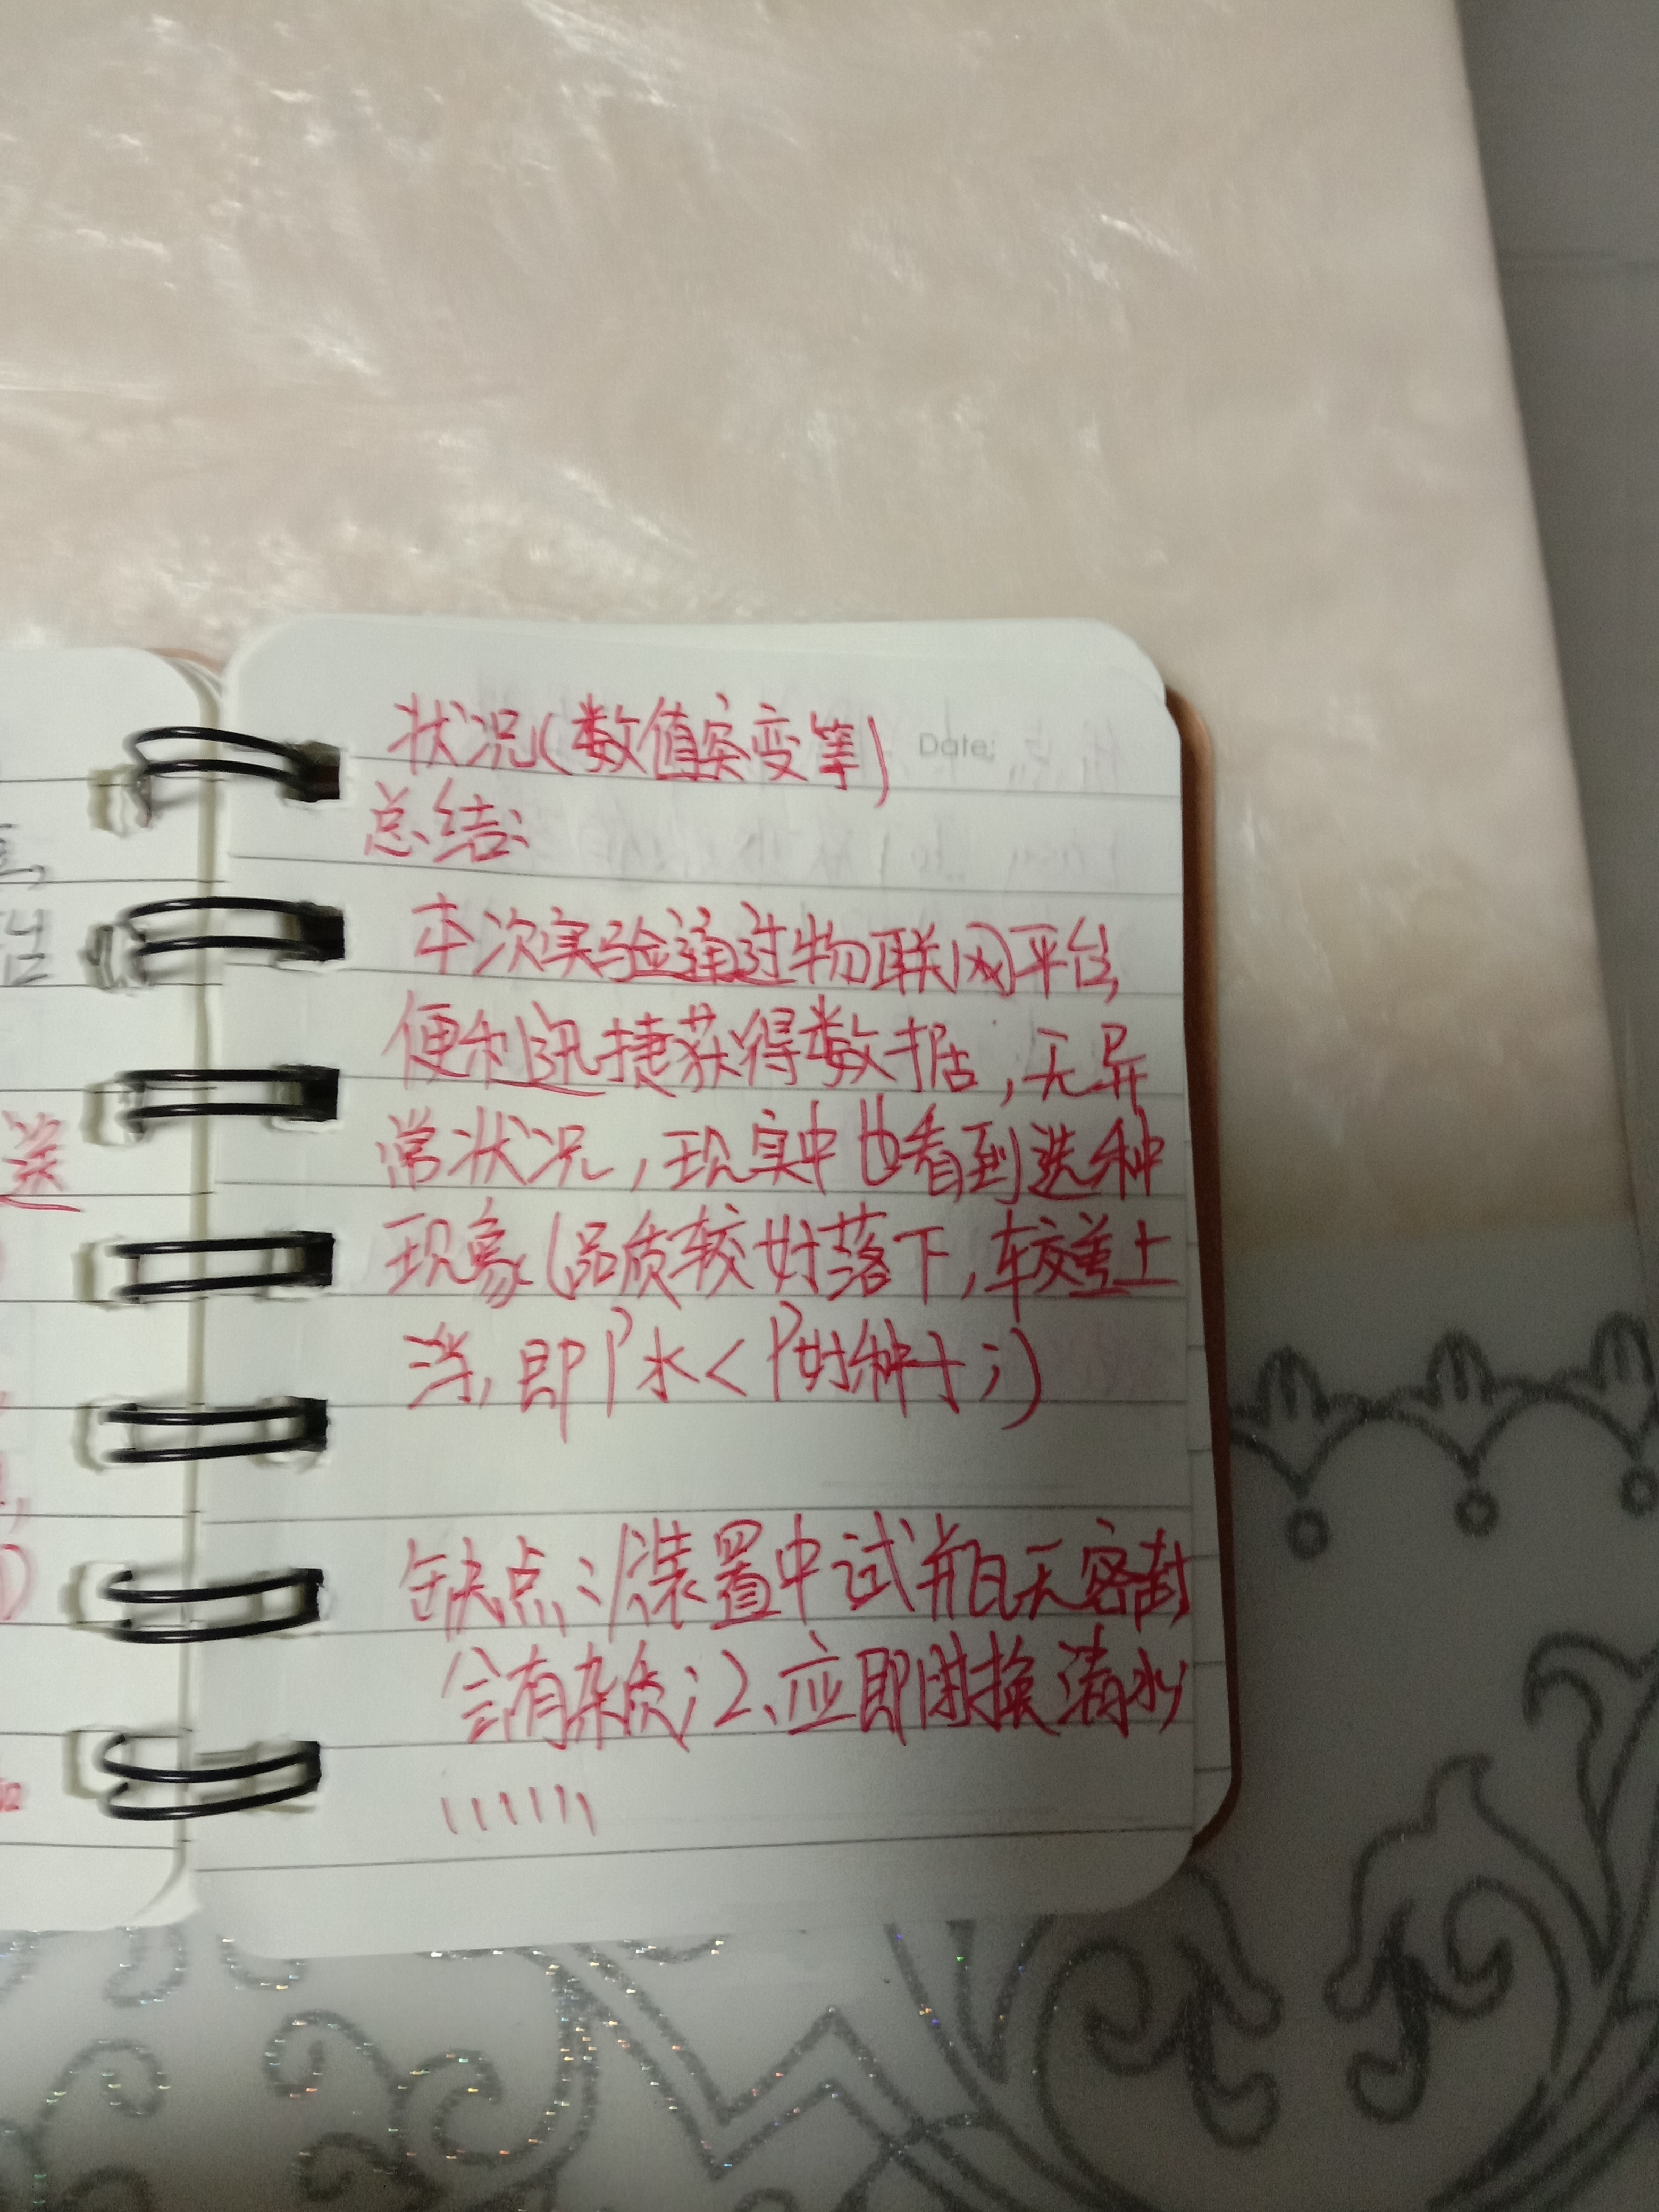 状况(数值突变等)
Date:
总结:
本次实验通过物联网平台,
便利迅捷获得数据,无异
常状况,现实中也看到选种
现象(品质较好落下,较差上
浮,即ρ水<ρ好种子;)
缺点:1、装置中试剂瓶无密封
会有杂质;2、应即时换清水
送